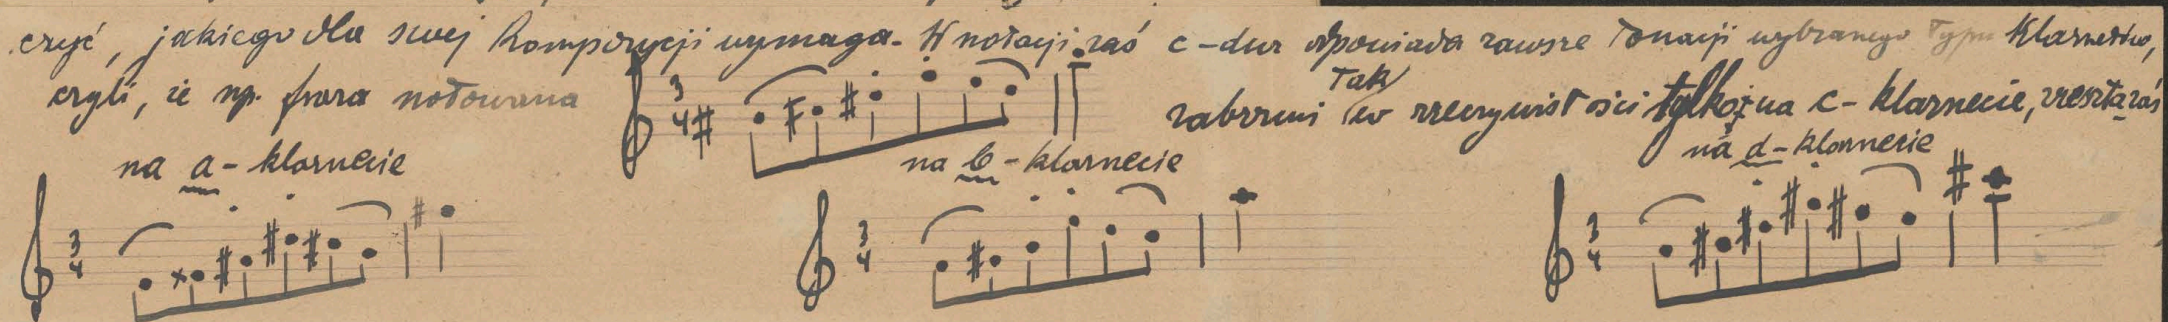 czyć, jakiego dla swej kompozycji wymaga. W notacji zaś c-dur odpowiada zawsze tonacji wybranego typu klarnetów,
czyli, że np. fraza notowana 3 4 zabrzmi tak w rzeczywistości tylko na c-klarnecie, zresztą zaś
na a-klarnecie na b-klarnecie na d-klarnecie
3 4 3 4 3 4